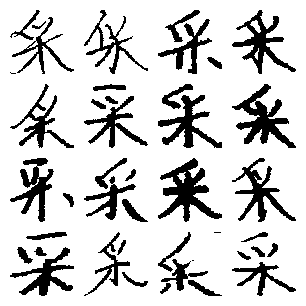 采采采采
采采采采
采采采采
采采采采